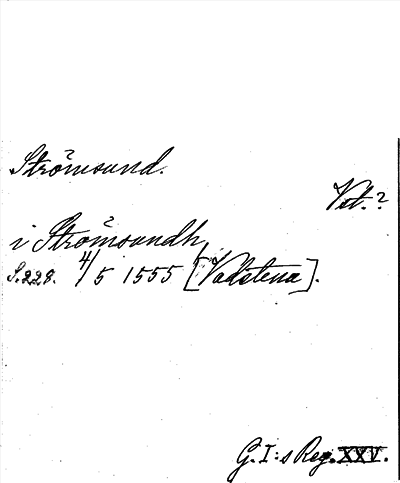 Strömsund.
Vet.?
i Strömsundh,
S.228. 4/5 1555 [Vadstena].
G.I:s Reg. XXV.